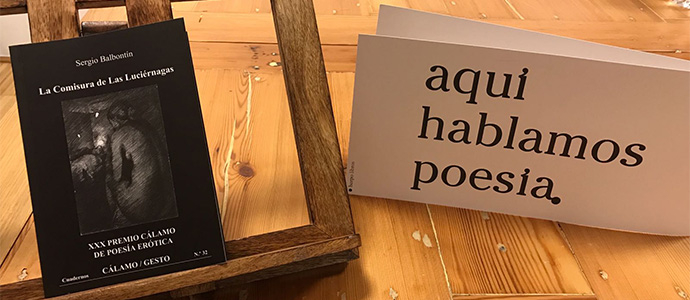 Sergio Balbontín
La Comisura de Las Luciérnagas
XXX PREMIO CÁLAMO
DE POESÍA ERÓTICA
Cuadernos
CÁLAMO / GESTO
N.º 32
aquí
hablamos
poesía.